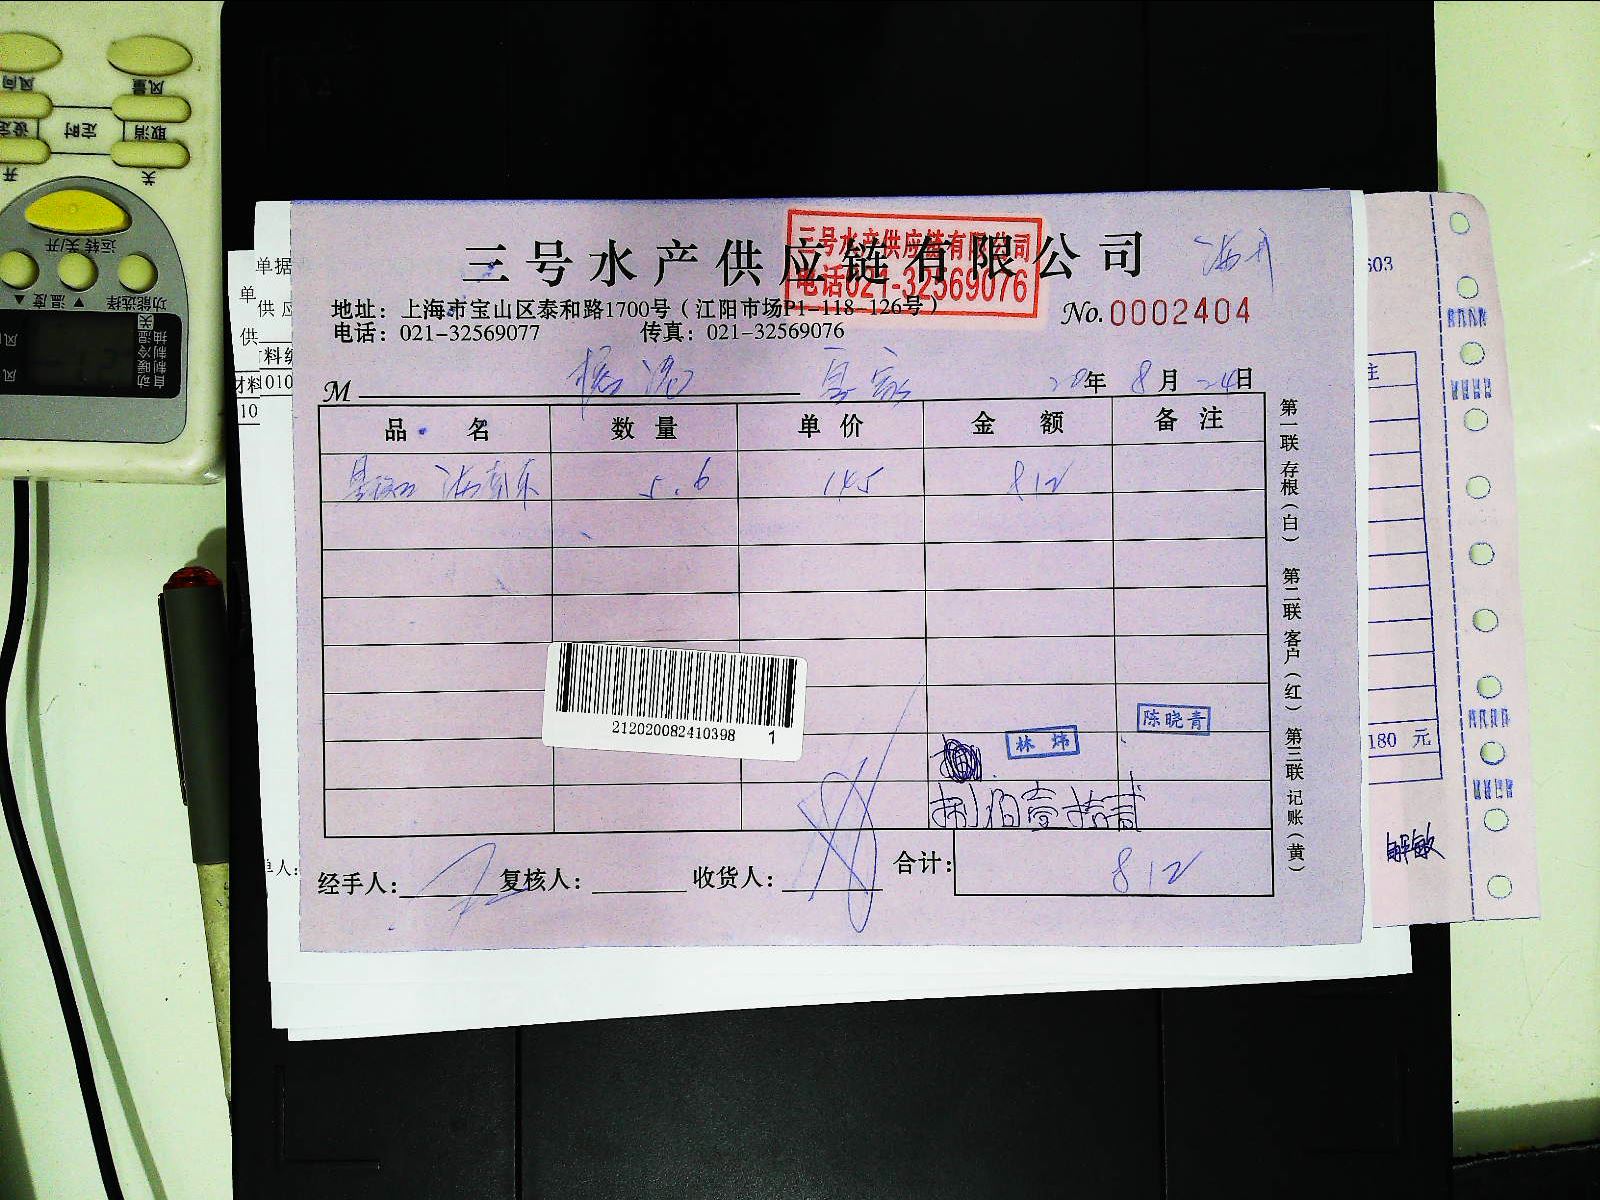 三号水产供应链有限公司
三号水产供应链有限公司
电话021-32569076
地址：上海市宝山区泰和路1700号（江阳市场P1-118-126号）
No.0002404
电话：021-32569077 传真：021-32569076
M 20年 8月 24日
品 名 数 量 单 价 金 额 备 注
5.6 145 812
第一联 存根（白） 第二联 客户（红） 第三联 记账（黄）
212020082410398 1
林炜
陈晓青
捌佰壹拾贰
经手人： 复核人： 收货人： 合计： 812
单据
单
供应
供
材料
010
10
单人：
603
注
180 元
解敏
风向
风量
设定
定时
取消
开
关
运转关/开
功能选择
▲温度▼
自动
制暖
制冷
抽湿
关
风
风